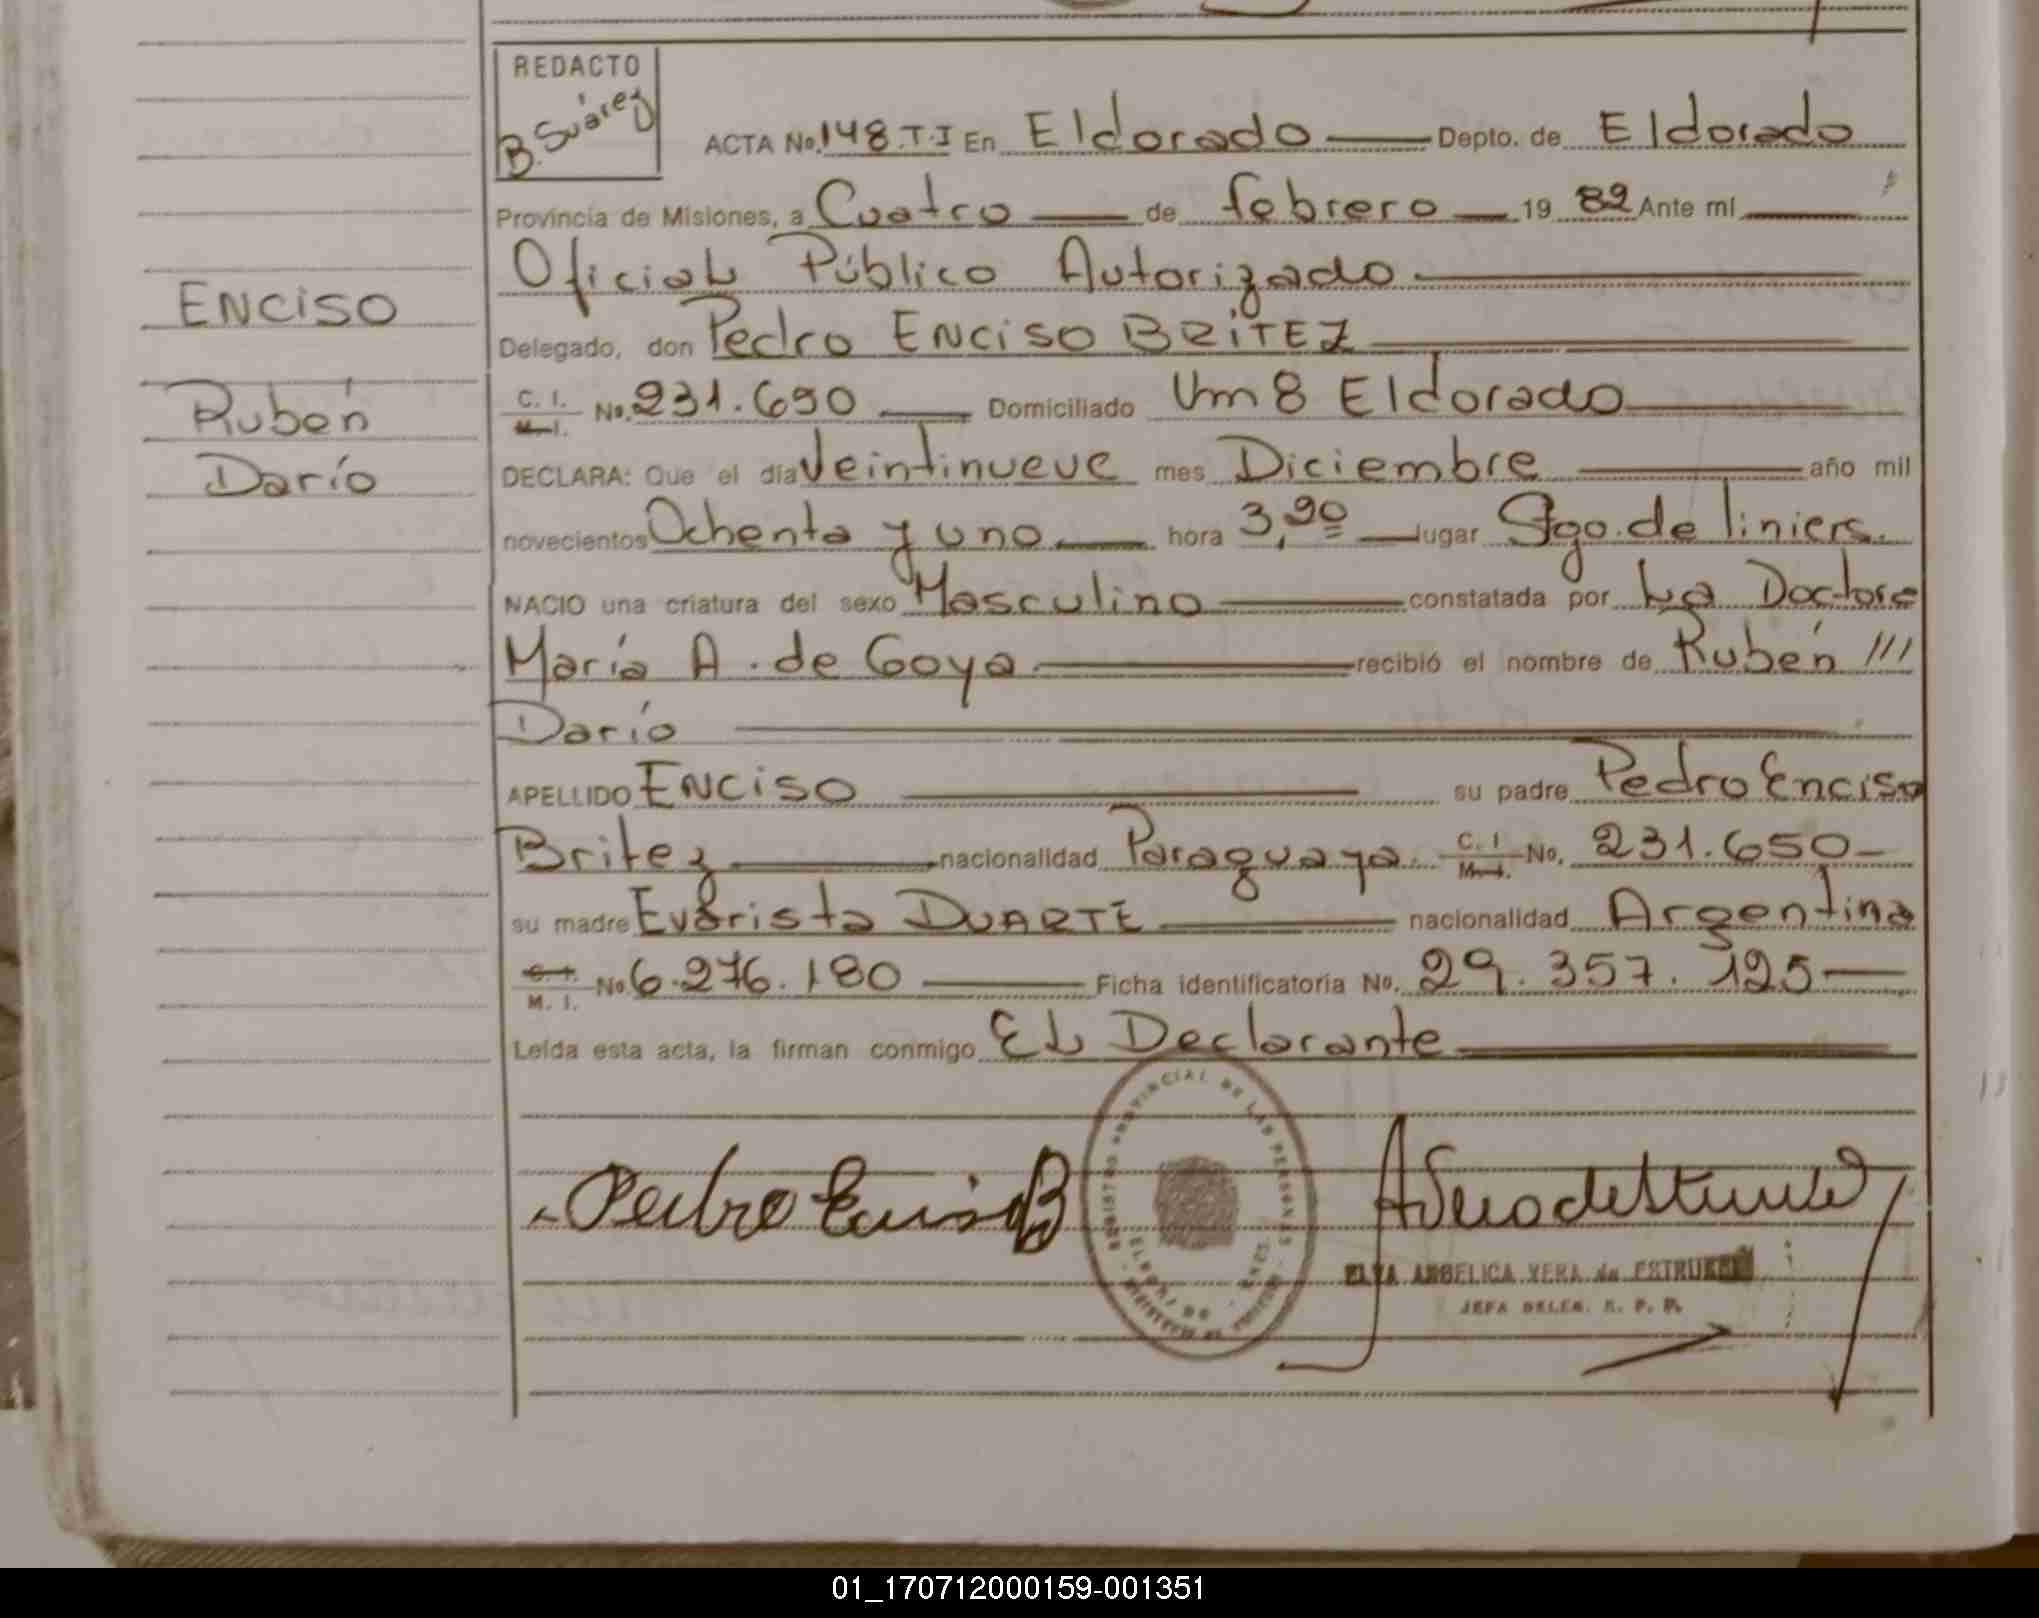 REDACTO
B. Suárez
ACTA No. 148.T.I En Eldorado Depto. de Eldorado
Provincia de Misiones, a Cuatro de febrero 19 82 Ante mí
Oficial Público Autorizado
Delegado, don Pedro ENCISO BRITEZ
C. I. M. I. No. 231.690 Domiciliado Km 8 Eldorado
DECLARA: Que el día Veintinueve mes Diciembre año mil
novecientos Ochenta y uno hora 3,20 lugar Stgo. de liniers.
NACIO una criatura del sexo Masculino constatada por La Doctora
María A. de Goya recibió el nombre de Rubén ///
Darío
APELLIDO ENCISO su padre Pedro Enciso
Britez nacionalidad Paraguaya. C. I M. I. No. 231.650-
su madre Evarista DUARTE nacionalidad Argentina
C. I. M. I. No. 6.276.180 Ficha identificatoria No. 29.357.125
Leída esta acta, la firman conmigo EL Declarante
ENCISO
Rubén
Darío
Pedro Enciso B
REGISTRO PROVINCIAL DE LAS PERSONAS
ELVA ANGELICA VERA de ESTRUBEL
JEFA DELEG. R. P. P.
01_170712000159-001351